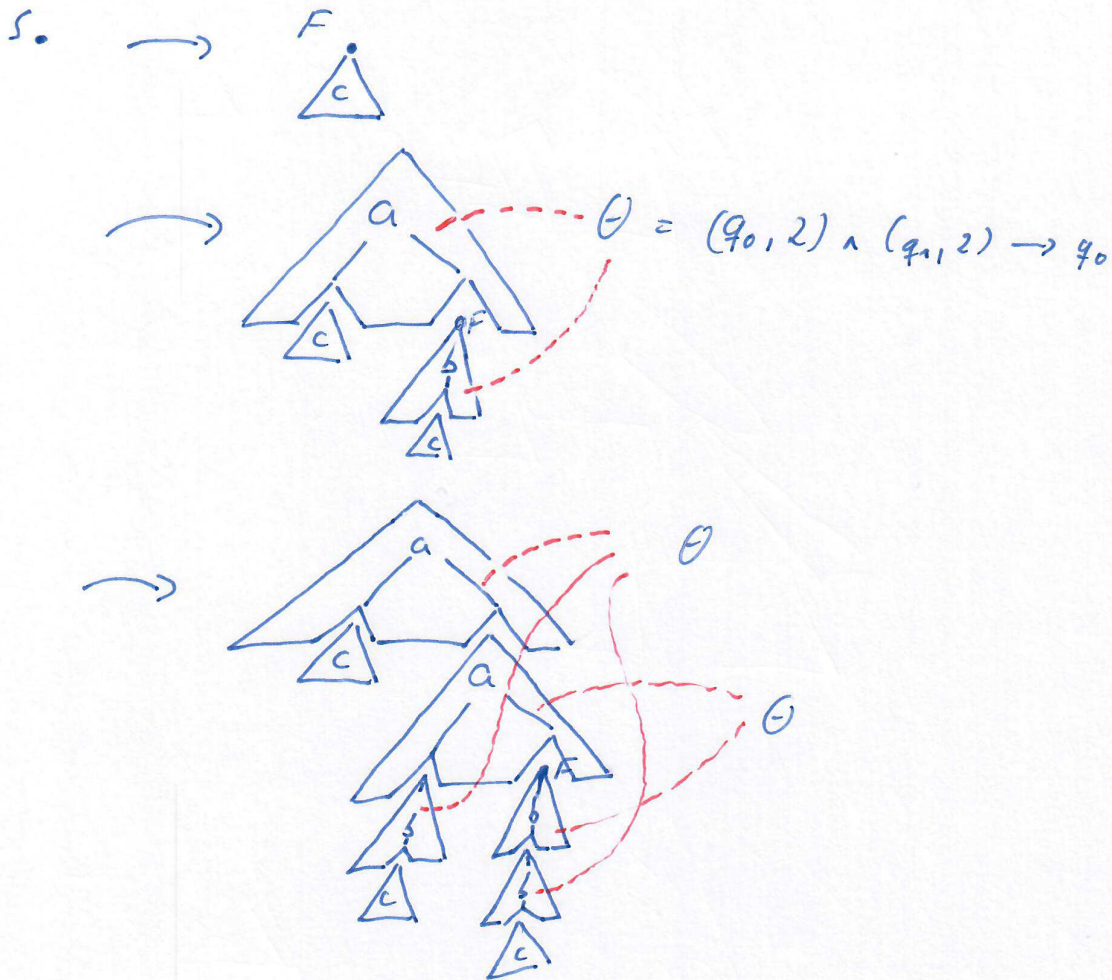 S. → F
c
→ a θ = (q₀, 2) ∧ (q₁, 2) → q₀
c F
b
c
→ a θ
c
a θ
F
b b
c b
c